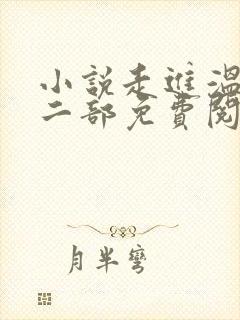 小説走進溫
二部免費閱
月半彎